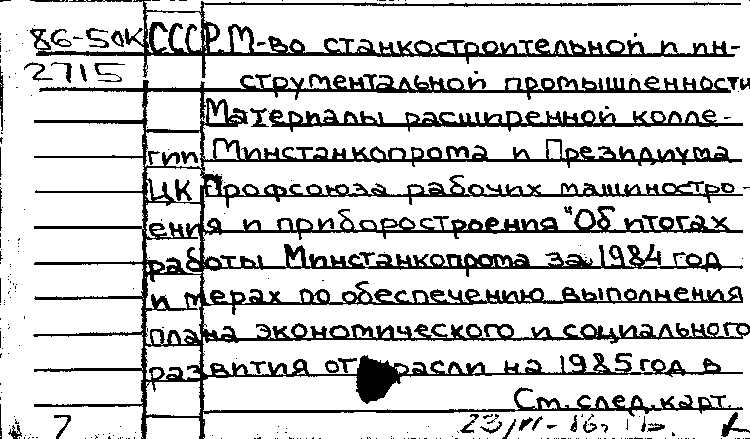 86-5ок СССР. М-во станкостроительной и ин-
2715 струментальной промышленности
Материалы расширенной колле-
гии Минстанкопрома и Президиума
ЦК Профсоюза рабочих машиностро-
ения и приборостроения "Об итогах
работы Минстанкопрома за 1984 год
и мерах по обеспечению выполнения
плана экономического и социального
развития отрасли на 1985 год в
См. след. карт.
7